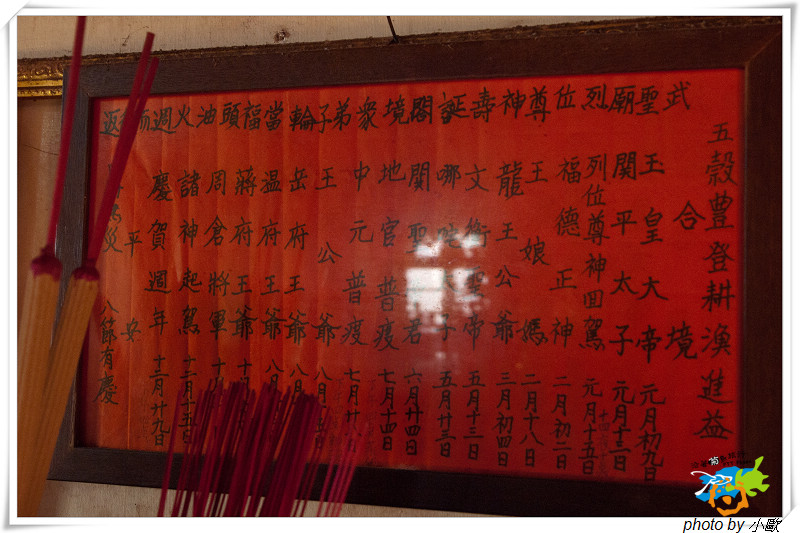 五穀豊登耕漁進益
武聖廟烈位尊神壽誕閤境衆弟子輪當福頭油火週而返
合境平安
玉皇大帝 元月初九日
關平太子 元月十三日
列位尊神回駕 元月十五日
福德正神 二月初二日
王娘媽 二月十八日
龍王公爺 三月初四日
文衡聖帝 五月十三日
哪太子 五月廿三日
關聖君 六月廿四日
地官普 七月十四日
中元普 七月廿
王公爺 八月
岳府王爺 八月
温府王爺 八月
蔣府王爺 十
周倉將軍 十
諸神起駕 十二月十五日
慶賀週年 十二月廿九日
災 八節有慶
photo by 小歐